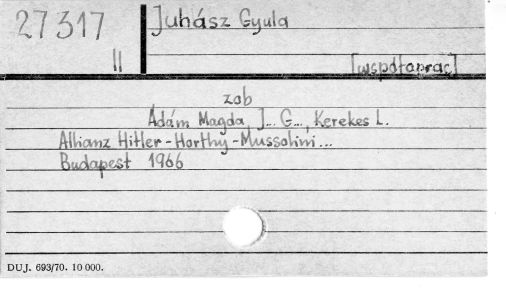 27317
II
Juhász Gyula
[współoprac]
zob
Ádám Magda, J... G..., Kerekes L.
Allianz Hitler-Horthy-Mussolini...
Budapest 1966
DUJ. 693/70. 10 000.